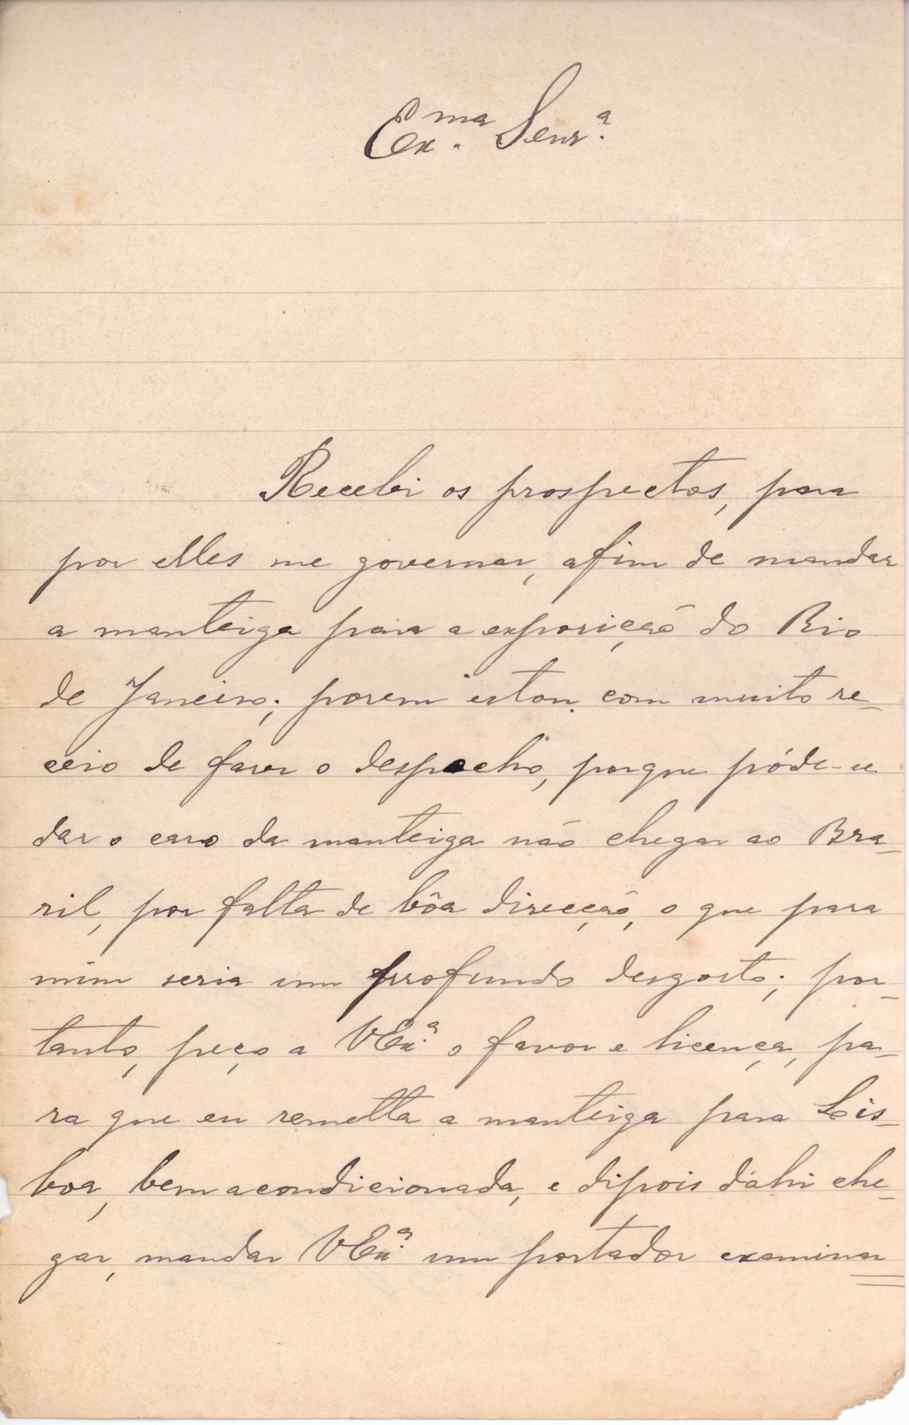 Ex.ma Senr.a
Recebi os prospectos, para
por elles me governar, afim de mandar
a manteiga para a exposição do Rio
de Janeiro; porem estou com muito re-
ceio de faser o despacho, porque póde-se
dar o caso da manteiga não chegar ao Bra-
sil, por falta de bôa direcção, o que para
mim seria um profundo desgosto; por-
tanto, peço a VEx.a o favor e licença, pa-
ra que eu remetta a manteiga para Lis-
boa, bem acondicionada, e dipois d'ahi che-
gar, mandar VEx.a um portador examinar